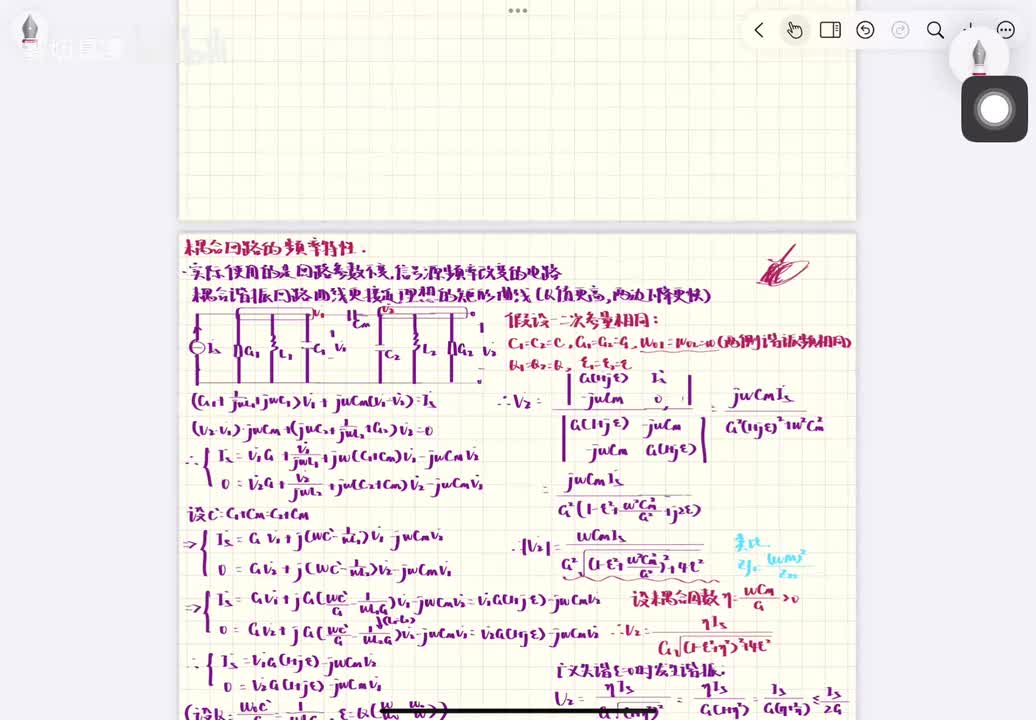 耦合回路的频率特性.
·实际使用的是回路参数不变,信号源频率改变的电路
耦合谐振回路曲线更接近理想的矩形曲线(从值更高,两边下降更快)
假设一二次参量相同:
C₁=C₂=C, G₁=G₂=G, ω₀₁=ω₀₂=ω₀(两侧谐振频相同)
Q₁=Q₂=Q, ξ₁=ξ₂=ξ
İs G₁ L₁ C₁ V̇₁ Cm C₂ L₂ G₂ V̇₂
(G₁+1/jωL₁+jωC₁)V̇₁+jωCm(V̇₁-V̇₂)=İs
(V̇₂-V̇₁)·jωCm+(jωC₂+1/jωL₂+G₂)V̇₂=0
∴ { İs=V̇₁G+V̇₁/jωL₁+jω(C₁+Cm)V̇₁-jωCmV̇₂
0=V̇₂G+V̇₂/jωL₂+jω(C₂+Cm)V̇₂-jωCmV̇₁
设C'=C₁+Cm=C₂+Cm
⇒ { İs=GV̇₁+j(ωC'-1/ωL₁)V̇₁-jωCmV̇₂
0=GV̇₂+j(ωC'-1/ωL₂)V̇₂-jωCmV̇₁
⇒ { İs=GV̇₁+jG(ωC'/G-1/ωL₁G)V̇₁-jωCmV̇₂=V̇₁G(1+jξ)-jωCmV̇₂
0=GV̇₂+jG(ωC'/G-1/ωL₂G)V̇₂-jωCmV̇₁=V̇₂G(1+jξ)-jωCmV̇₁
∴ { İs=V̇₁G(1+jξ)-jωCmV̇₂
0=V̇₂G(1+jξ)-jωCmV̇₁
∴V̇₂= |G(1+jξ) İs; -jωCm 0| / |G(1+jξ) -jωCm; -jωCm G(1+jξ)| = jωCmİs/G²(1+jξ)²+ω²Cm²
= jωCmİs/G²(1-ξ²+ω²Cm²/G²+j2ξ)
∴|V̇₂|=ωCmIs/G²√((1-ξ²+ω²Cm²/G²)²+4ξ²)
设耦合因数η=ωCm/G>0
∴V₂=ηIs/G√((1-ξ²+η²)²+4ξ²)
广义失谐ξ=0时发生谐振.
V₂=ηIs/G√(1+η²)²=ηIs/G(1+η²)=Is/G(η+1/η)≤Is/2G